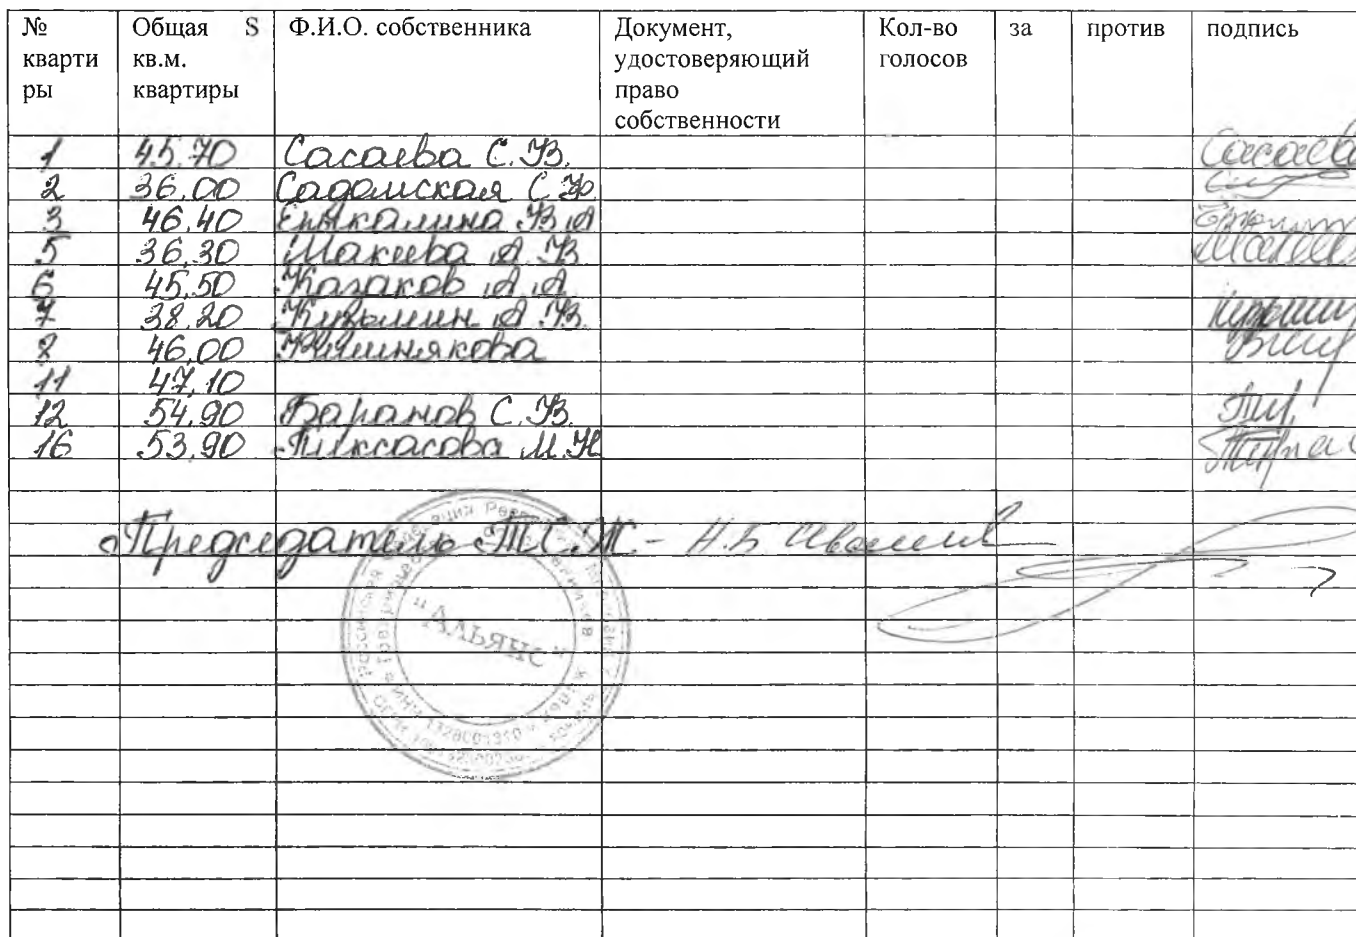 № квартиры Общая S кв.м. квартиры Ф.И.О. собственника Документ, удостоверяющий право собственности Кол-во голосов за против подпись
1 45.70 Сасаева С.В. Сасаева
2 36.00 Садомская С
3 46.40 Еныкалина В.А
5 36.30 Макеева А.В.
6 45.50 Казаков А.А.
7 38.20 Кузьмин А.В.
8 46.00 Вишнякова
11 47.10
12 54.90 Баранов С.В.
16 53.90 Пиксасова М.Н
Председатель ТСЖ - Н.Б
"АЛЬЯНС"